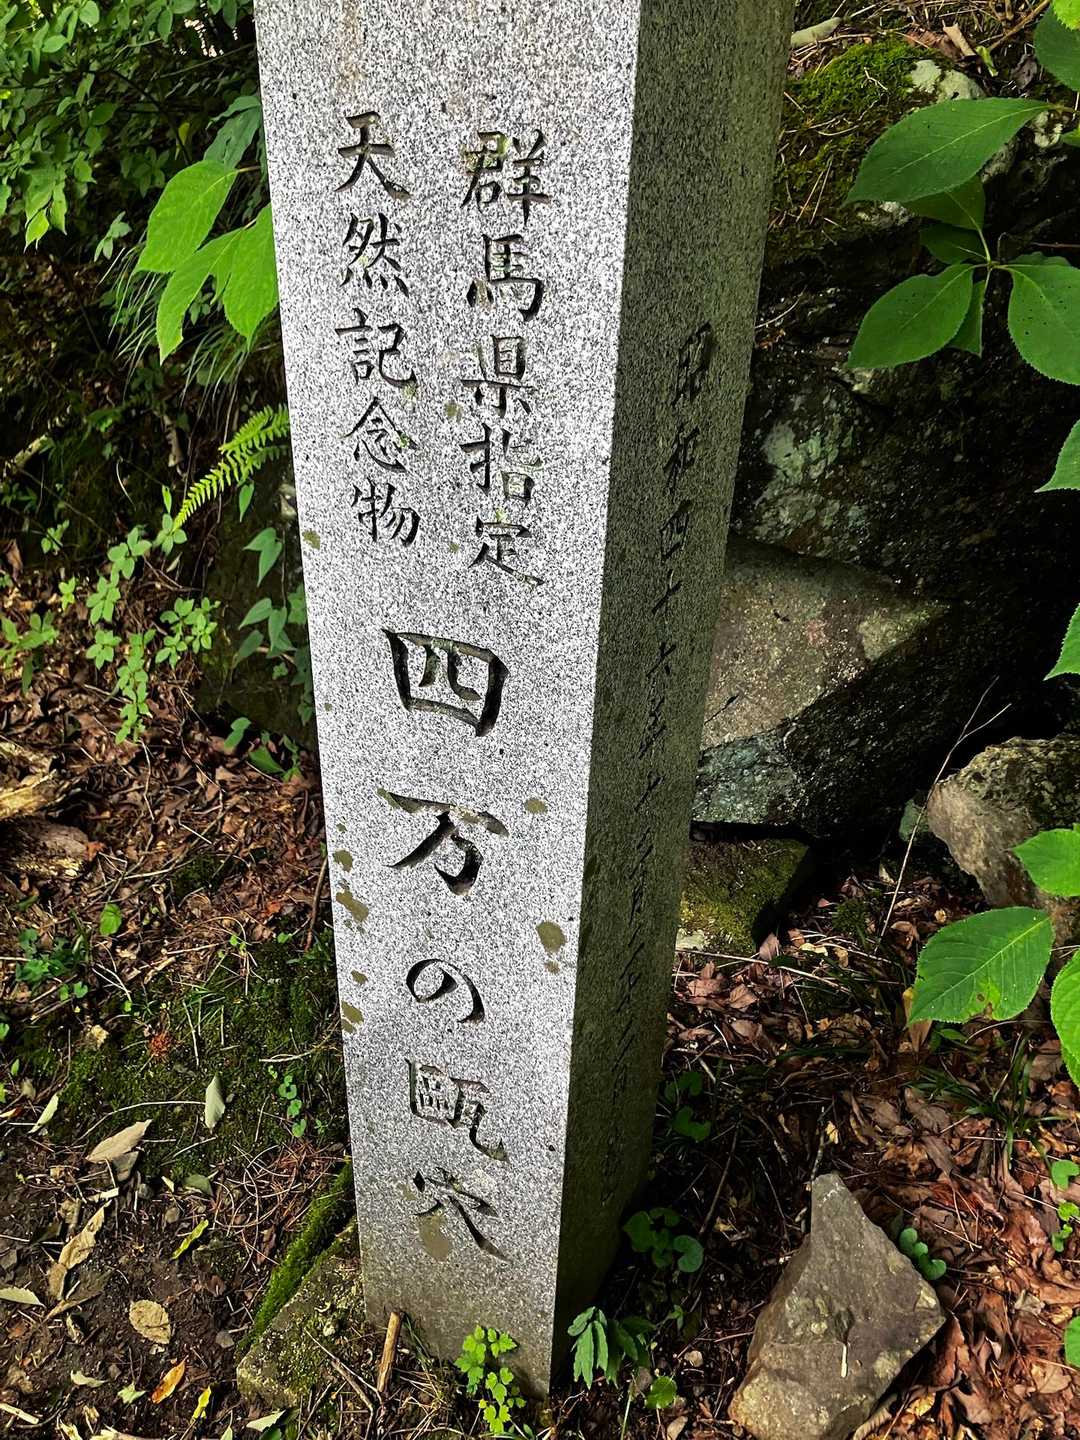 群馬県指定
天然記念物
四万の甌穴
昭和四十六年十二月